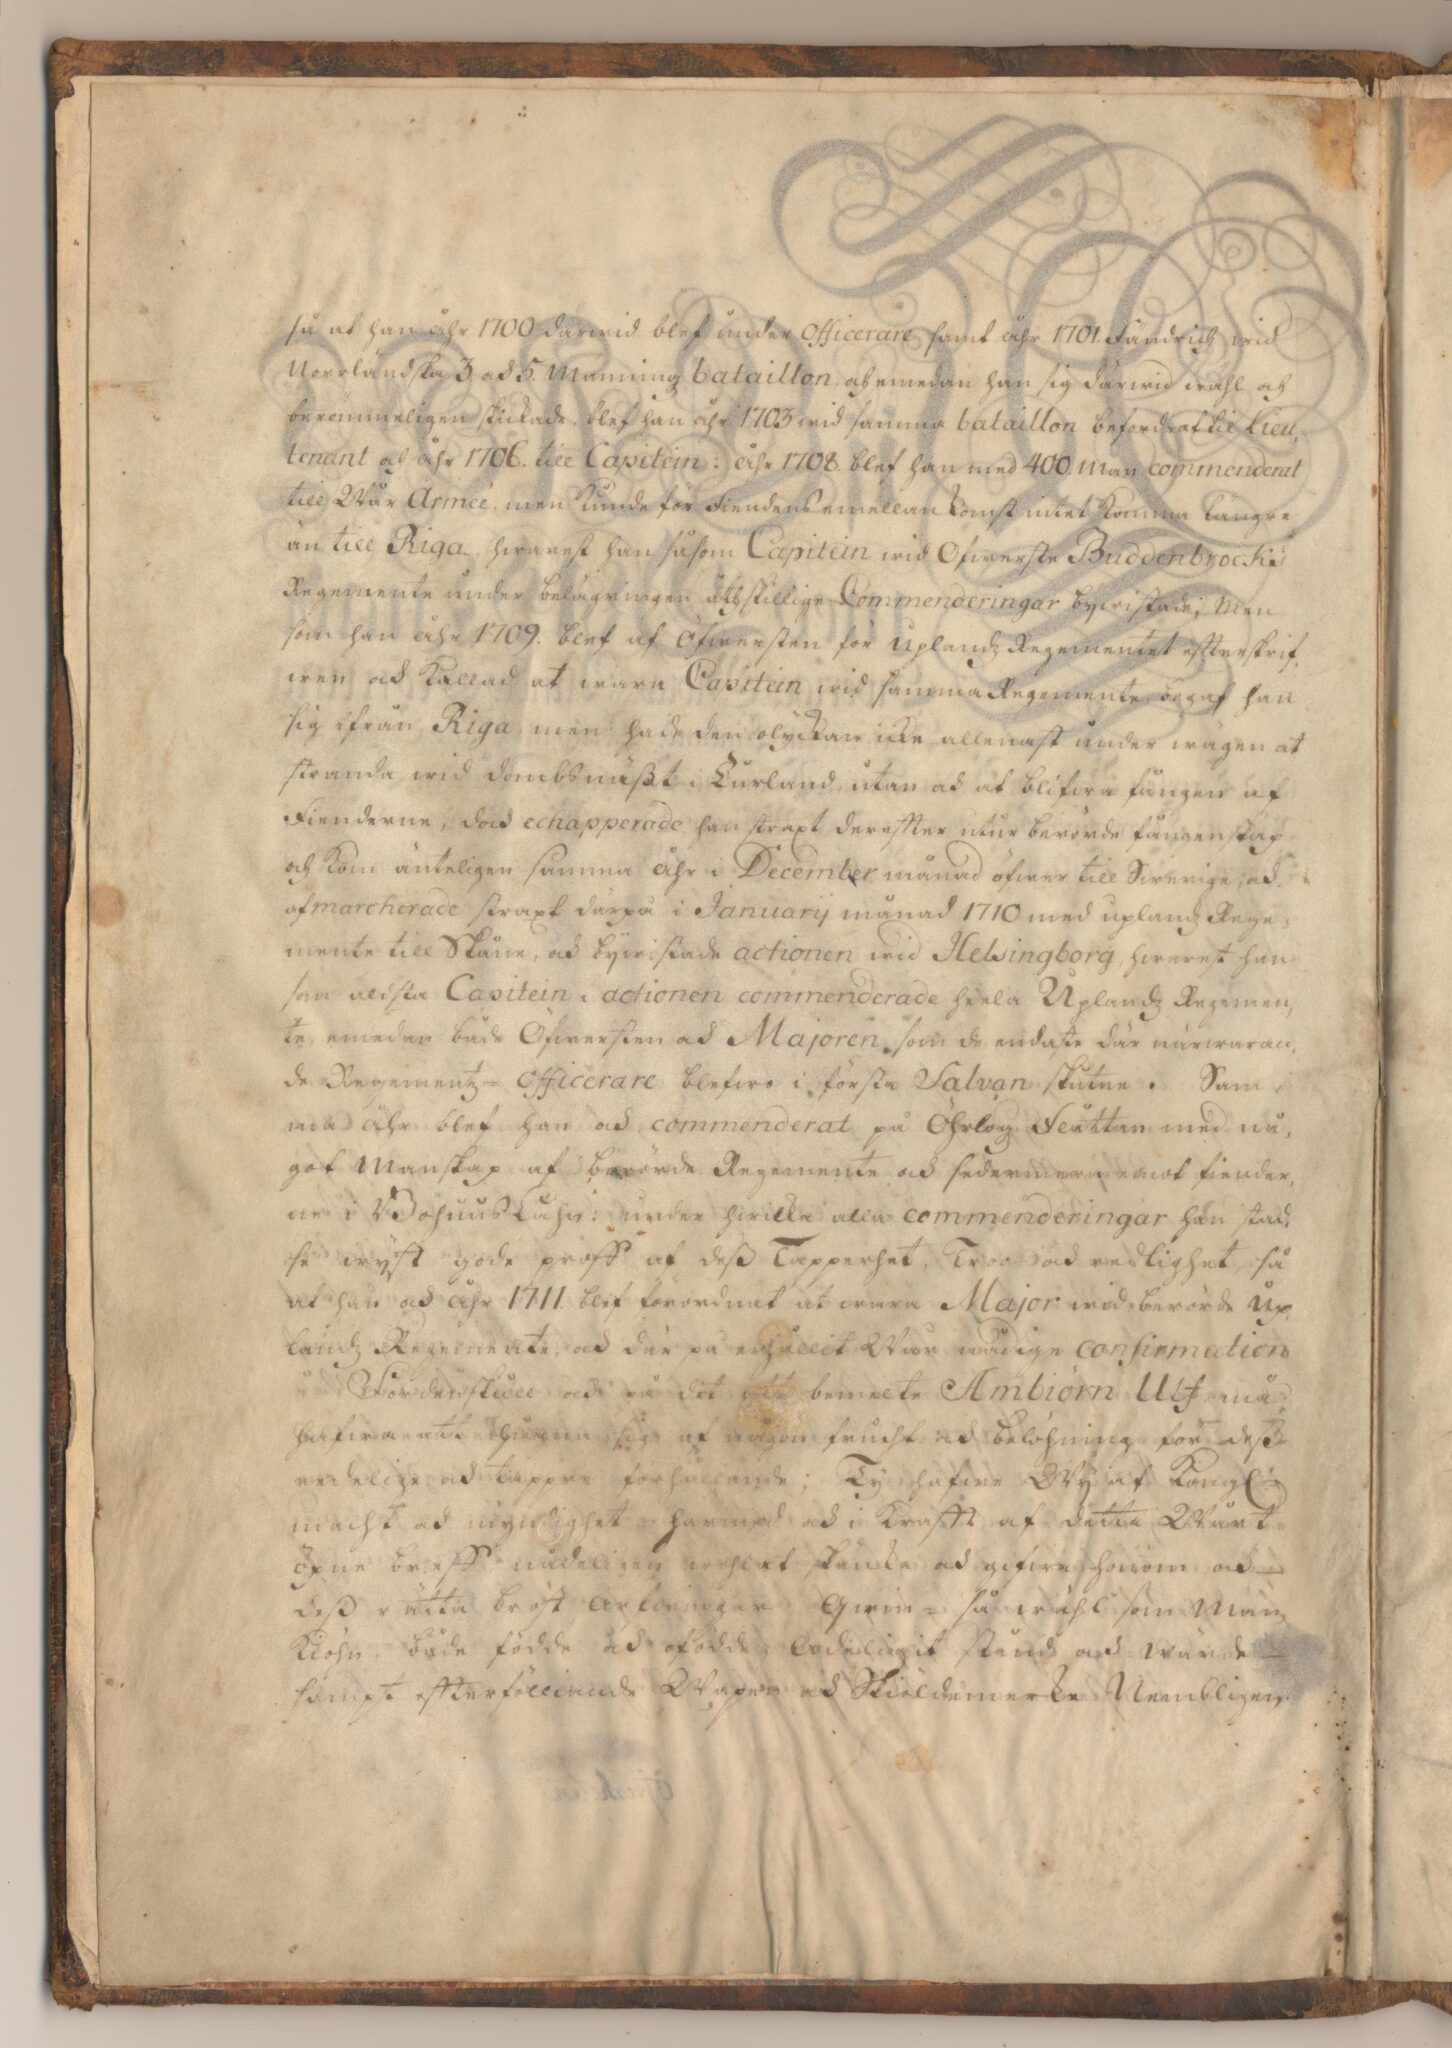 så at han åhr 1700 därwid blef under officerare, samt åhr 1701 Fändrich wid
Norrländska 3 och 5 Männing bataillon, och emedan han sig därwid wähl och
berömmeligen skickade, blef han åhr 1703 wid samma bataillon befordrat til Lieu,
tenant och åhr 1706. till Capitein: åhr 1708. blef han med 400. Man commenderat
till Wår Armeé, men kunde för Fiendens emellankomst intet komma längre
än till Riga, hwarest han såsom Capitein wid Öfwerste Buddenbrocks
Regemente under belägringen åtskillige Commenderingar bywistade; Men
som han åhr 1709. blef af Öfwersten för Uplandz Regementet effterskrif,
wen och kallad at wara Capitein wid samma Regemente, begaf han
sig ifrån Riga, men hade den olyckan icke allenast under wägen at
stranda wid Dombsnäßt i Curland, utan och at blifwa fången af
Fienderne, doch echapperade han strext dereffter utur berörde fångenskap
och kom änteligen samma åhr i December månad öfwer till Swerige, och
afmarcherade straxt därpå i Januarij månad 1710 med Uplandz Rege,
mente till Skåne, och bywistade actionen wid Helsingborg, hwarest han
som äldsta Capitein i actionen commenderade heela Uplandz Regemen,
te, emedan både Öfwersten och Majoren, som de endaste där närwaran,
de Regementz- officerare blefwo i första Salvan skutne. Sam,
ma åhr blef han och commenderat på Öhrlog Flåttan med nå,
got Manskap af berörde Regemente och sedermera emot Fiender,
ne i Bohuus Lähn: under hwilka alla commenderingar han städ,
se wyst gode proff af deß Tapperhet, Troo och redlighet, så
at han och åhr 1711 blef förordnat at wara Major wid berörde Up,
landz Regemente, och där på erhållit Wår nådige confirmation
Fördenskull och på det att bemelte Ambiörn Ulf må
hafwa att hugna sig af någon frucht och belöhning för deß
redelige och tappre förhållande; Ty hafwe Wy af Kongl:
macht och myndighet, härmed och i Krafft af detta Wårt
öpne breff nådeligen welat skäncka och gifwa honom och
deß rätta bröst Arfwingar, Qwin- så wähl som Man,
Kiöhn, både födde och ofödde, Adeligit stånd och wärde
sampt efterföllliande Wapen och Skiöldemercke Nembligen